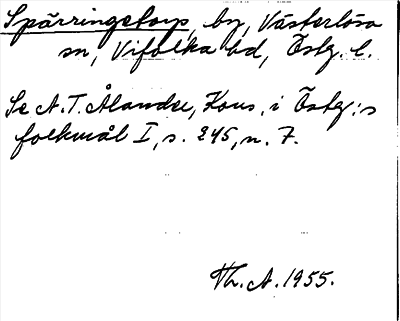 Spärringetorp, by, Västerlösa
sn, Vifolka hd, Östg. l.
Se A. T. Ålander, Kons. i Östg:s
folkmål I, s. 245, n. 7.
Th. A. 1955.